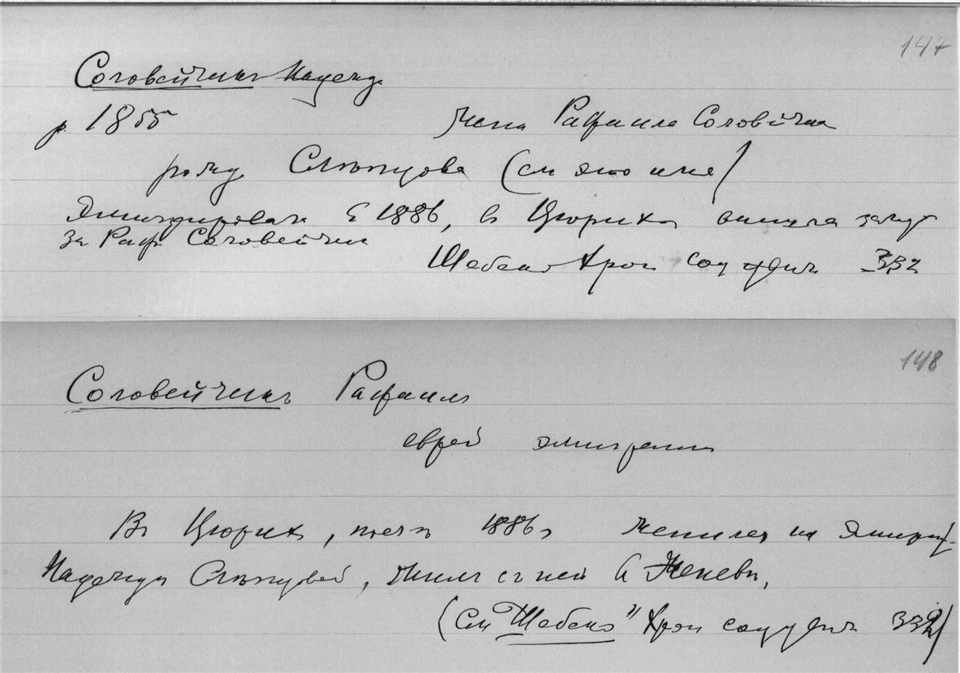 147
Соловейчикъ Надежд
р 1855 жена Рафаила Соловейчик
рожд Слепцова (см это имя)
Эмигрировала в 1886, в Цюрихе вышла замуж
за Раф Соловейчик
Шебеко Хрон соц движ 332
148
Соловейчикъ Рафаилъ
еврей эмигрант
Въ Цюрих, 1886 женился на Эмигр-
Надежде Слепцовой, жилъ с ней в Женеве,
(См "Шебеко" Хрон соц движ 332)